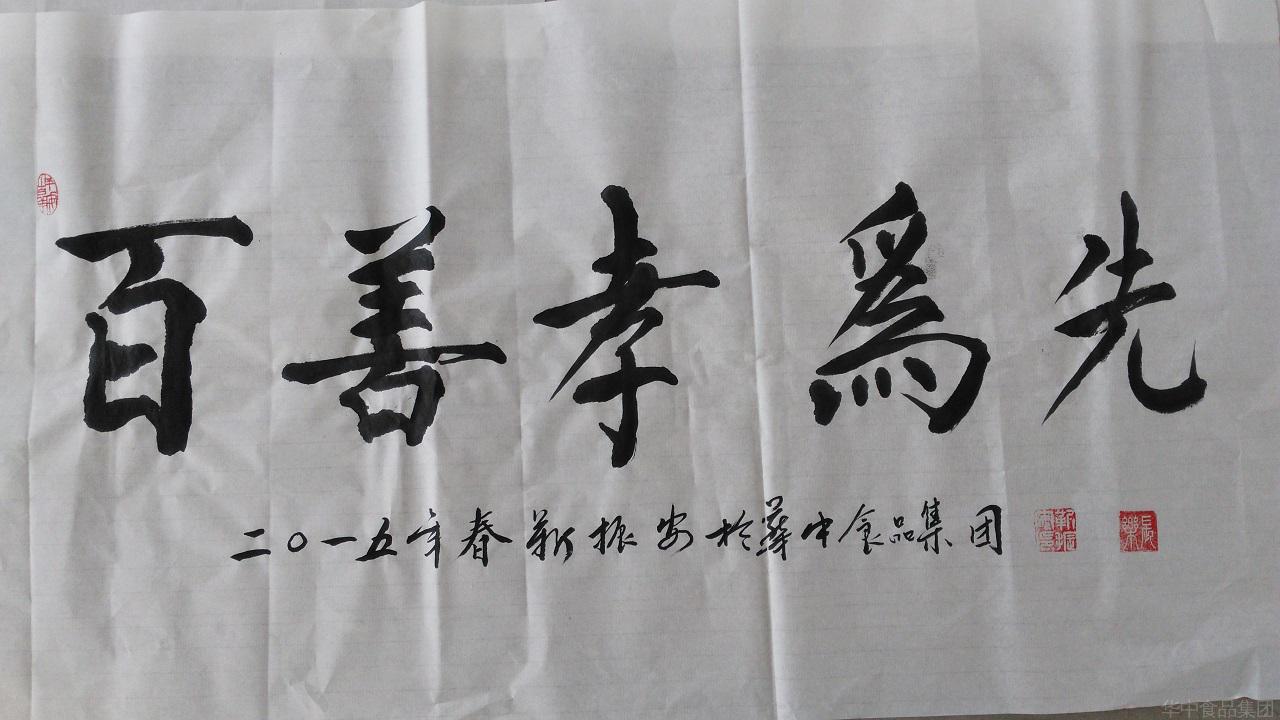 百善孝為先
二〇一五年春靳振安於華中食品集团
华中食品集团